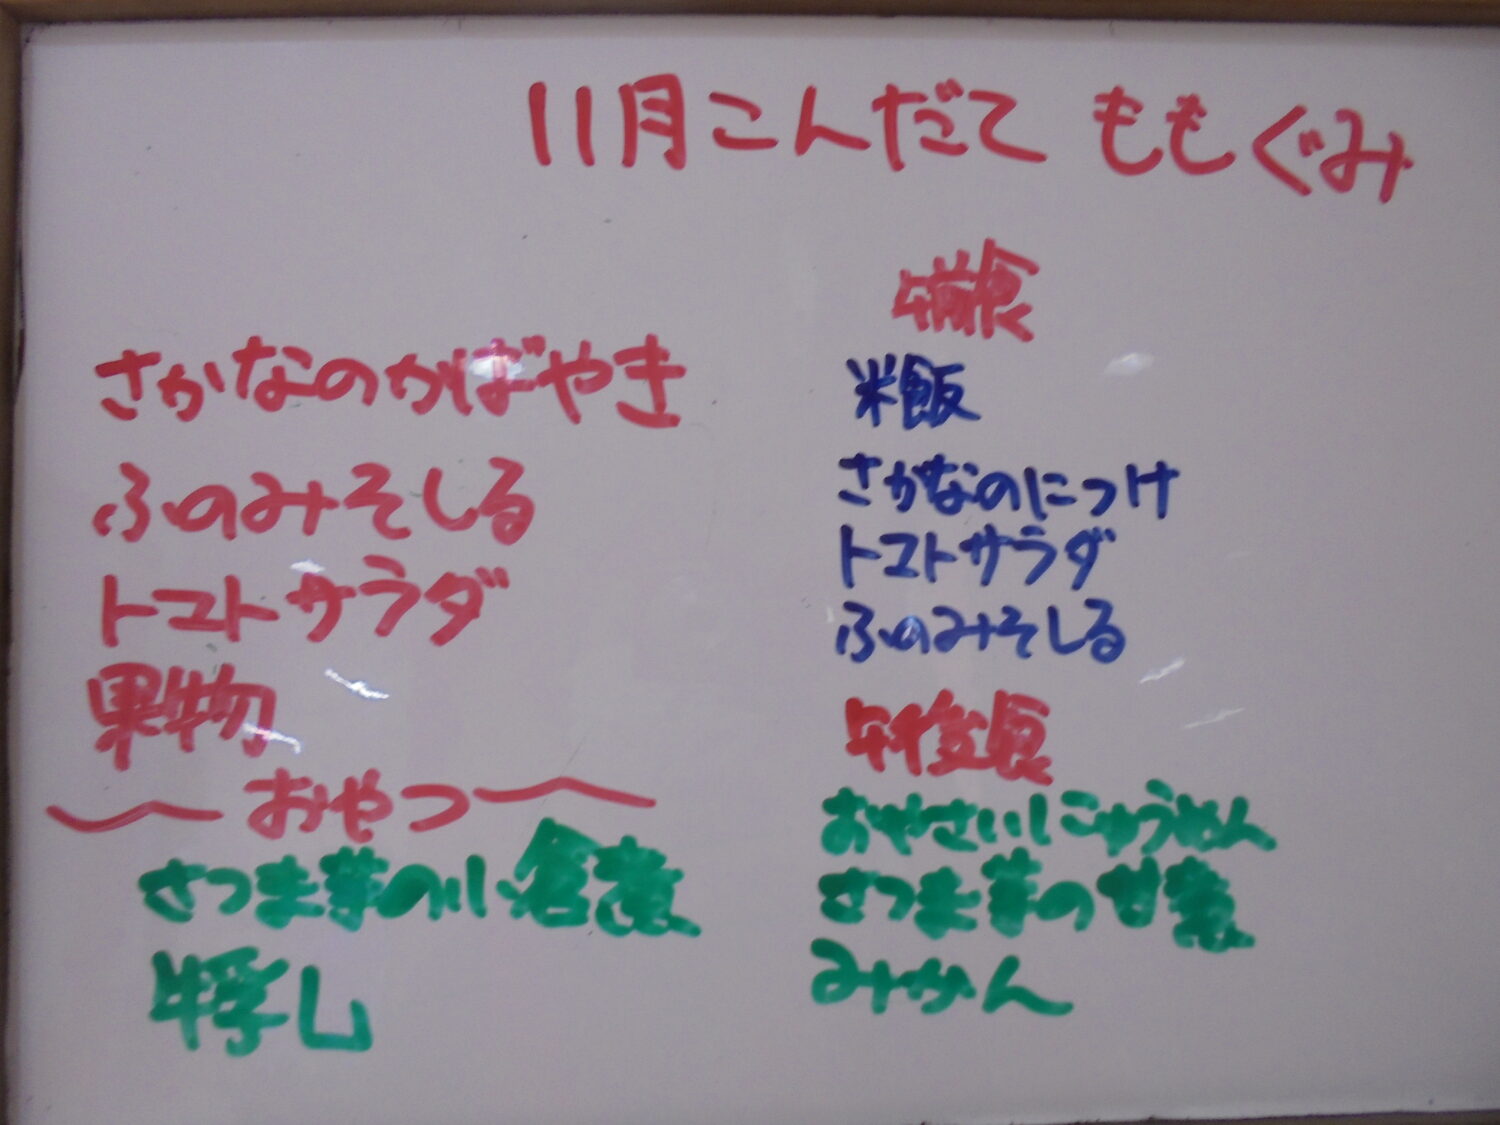 11月こんだて ももぐみ
さかなのかばやき
ふのみそしる
トマトサラダ
果物
おやつ
さつま芋の小倉煮
牛乳
午前食
米飯
さかなのにつけ
トマトサラダ
ふのみそしる
午後食
おやさいにゅうめん
さつま芋の甘煮
みかん